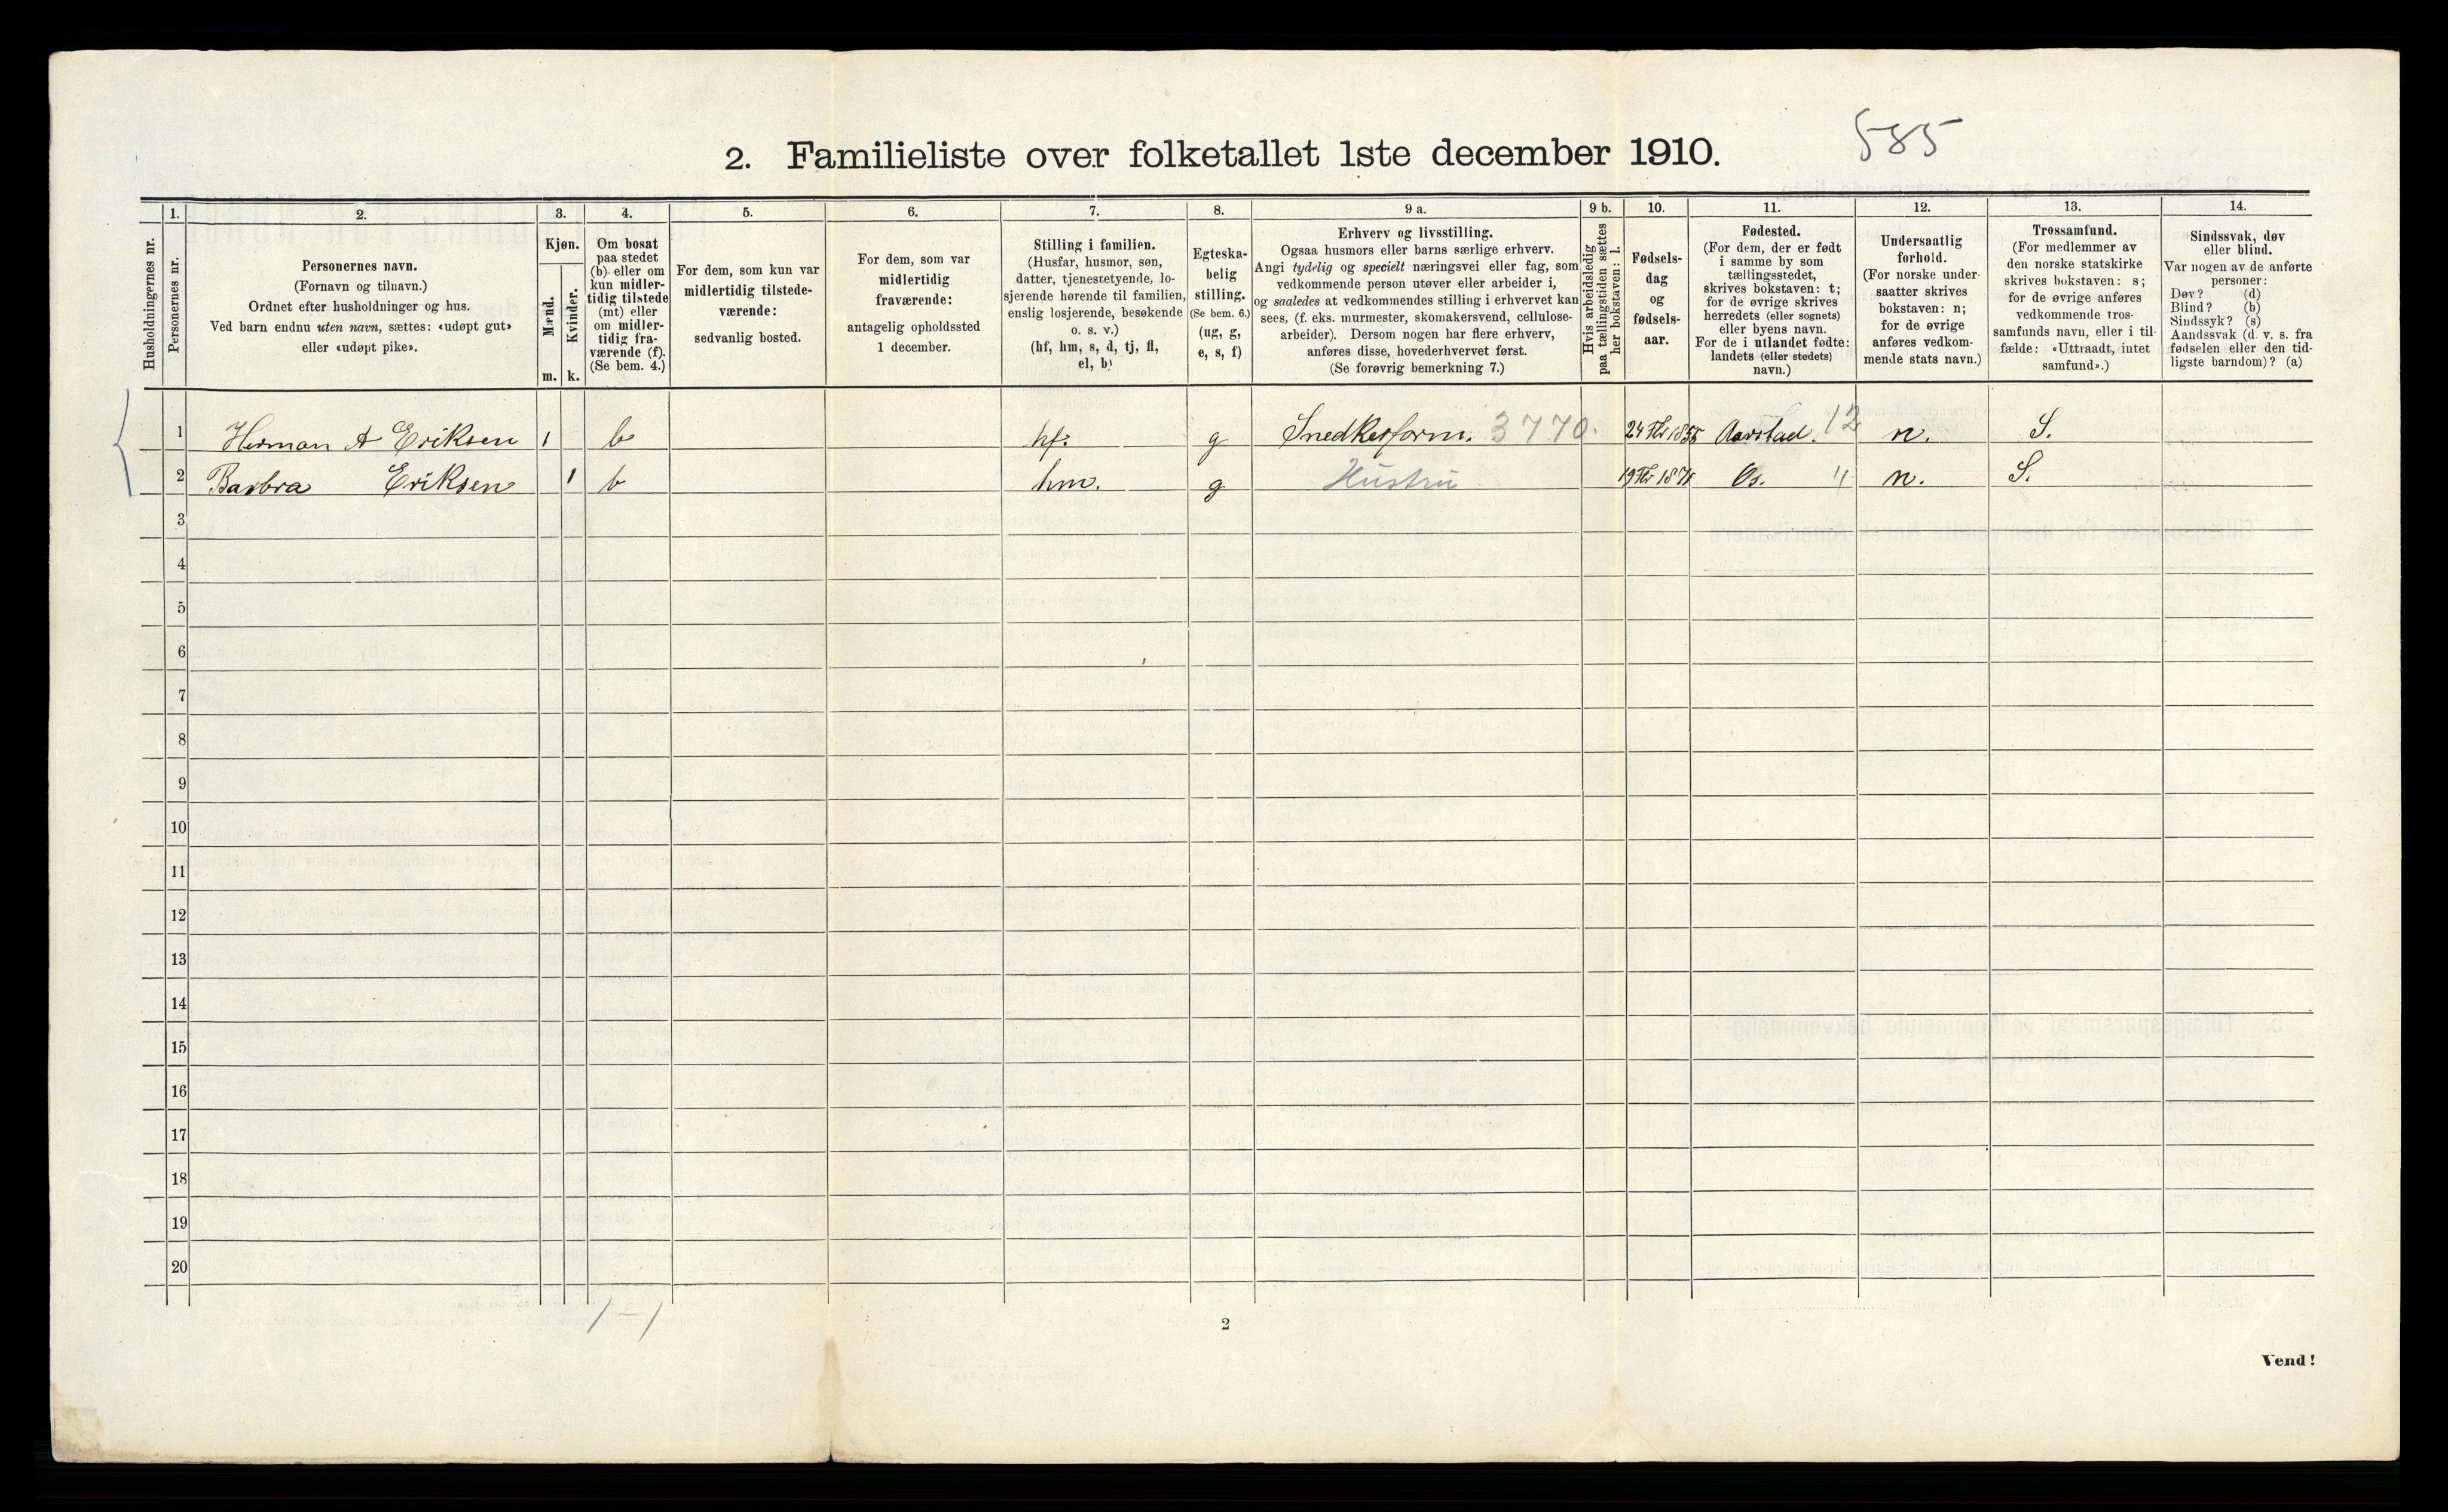 585
2. Familieliste over folketallet 1ste december 1910.
Husholdningernes nr.
1.
Personernes nr.
2.
Personernes navn.
(Fornavn og tilnavn.)
Ordnet efter husholdninger og hus.
Ved barn endnu uten navn, sættes: «udøpt gut»
eller «udøpt pike».
3.
Kjøn.
Mænd.
Kvinder.
m. k.
4.
Om bosat
paa stedet
(b) eller om
kun midler-
tidig tilstede
(mt) eller
om midler-
tidig fra-
værende (f).
(Se bem. 4.)
5.
For dem, som kun var
midlertidig tilstede-
værende:
sedvanlig bosted.
6.
For dem, som var
midlertidig
fraværende:
antagelig opholdssted
1 december.
7.
Stilling i familien.
(Husfar, husmor, søn,
datter, tjenestetyende, lo-
sjerende hørende til familien,
enslig losjerende, besøkende
o. s. v.)
(hf, hm, s, d, tj, fl,
el, b)
8.
Egteska-
belig
stilling.
(Se bem. 6.)
(ug, g,
e, s, f)
9 a.
Erhverv og livsstilling.
Ogsaa husmors eller barns særlige erhverv.
Angi tydelig og specielt næringsvei eller fag, som
vedkommende person utøver eller arbeider i,
og saaledes at vedkommendes stilling i erhvervet kan
sees, (f. eks. murmester, skomakersvend, cellulose-
arbeider). Dersom nogen har flere erhverv,
anføres disse, hovederhvervet først.
(Se forøvrig bemerkning 7.)
9 b.
Hvis arbeidsledig
paa tællingstiden sættes
her bokstaven: l.
10.
Fødsels-
dag
og
fødsels-
aar.
11.
Fødested.
(For dem, der er født
i samme by som
tællingsstedet,
skrives bokstaven: t;
for de øvrige skrives
herredets (eller sognets)
eller byens navn.
For de i utlandet fødte:
landets (eller stedets)
navn.)
12.
Undersaatlig
forhold.
(For norske under-
saatter skrives
bokstaven: n;
for de øvrige
anføres vedkom-
mende stats navn.)
13.
Trossamfund.
(For medlemmer av
den norske statskirke
skrives bokstaven: s;
for de øvrige anføres
vedkommende tros-
samfunds navn, eller i til-
fælde: «Uttraadt, intet
samfund».)
14.
Sindssvak, døv
eller blind.
Var nogen av de anførte
personer:
Døv? (d)
Blind? (b)
Sindssyk? (s)
Aandssvak (d. v. s. fra
fødselen eller den tid-
ligste barndom)? (a)
1 Herman A Eriksen 1 b hf. g Snedkerform. 3770. 24 1855 Aarstad. 12 n. S.
2 Barbra Eriksen 1 b hm. g Hustru 19 Os. " n. S.
3
4
5
6
7
8
9
10
11
12
13
14
15
16
17
18
19
20
1 – 1
2
Vend!